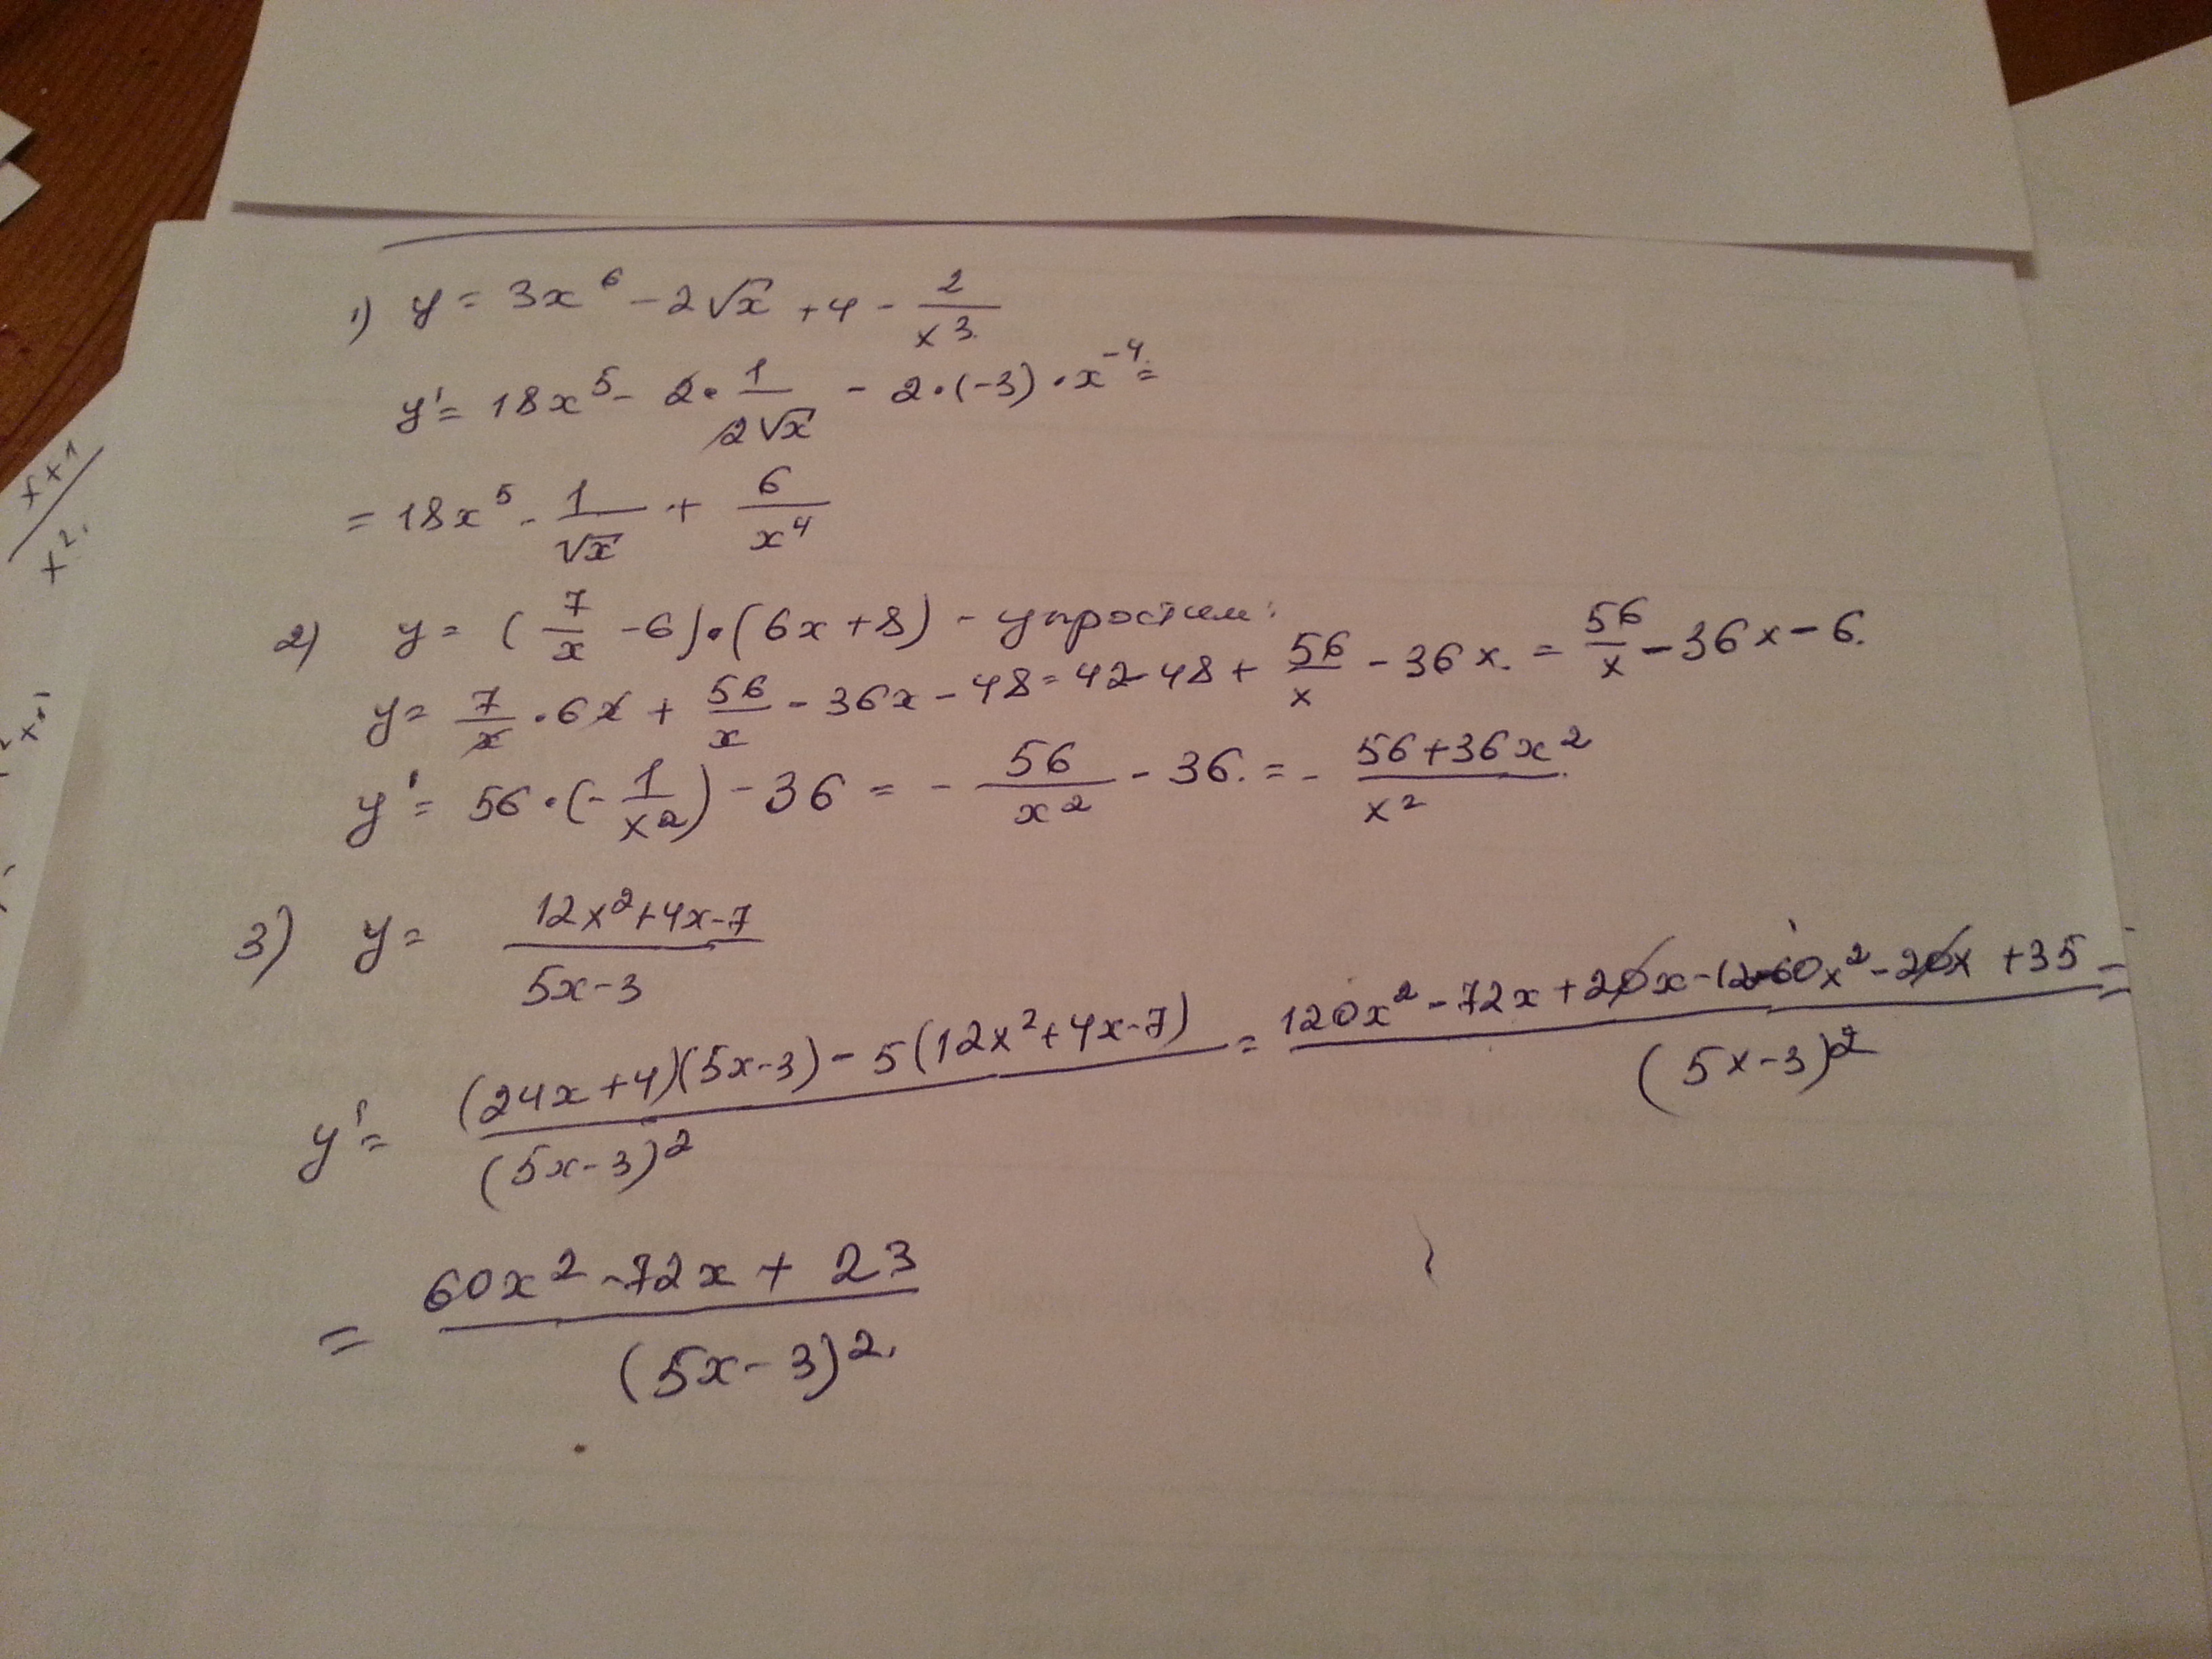 1) y = 3x⁶ - 2√x + 4 - 2/x³
y' = 18x⁵ - 2·1/(2√x) - 2·(-3)·x⁻⁴ =
= 18x⁵ - 1/√x + 6/x⁴
2) y = (7/x - 6)·(6x + 8) - упростим:
y = 7/x · 6x + 56/x - 36x - 48 = 42 - 48 + 56/x - 36x. = 56/x - 36x - 6.
y' = 56·(-1/x²) - 36 = - 56/x² - 36. = - (56 + 36x²)/x²
3) y = (12x² + 4x - 7)/(5x - 3)
y' = ((24x + 4)(5x - 3) - 5(12x² + 4x - 7))/(5x - 3)² = (120x² - 72x + 20x - 12 - 60x² - 20x + 35)/(5x - 3)² =
= (60x² - 72x + 23)/(5x - 3)².
x+1
x².